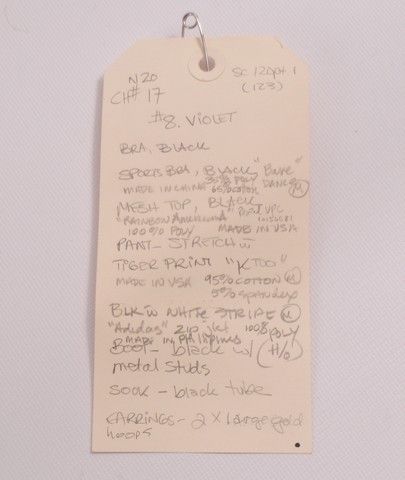 N20
CH# 17
SC 120pt 1
(123)
#8. VIOLET
BRA, BLACK
SPORTS BRA, BLACK, "Bare"
35% POLY DANCE
MADE IN CHINA 65% COTTON (M)
MESH TOP, BLACK
"RAINBOW AMERICANA"
100% POLY MADE IN USA
PANT - STRETCH
TIGER PRINT "KTOO"
MADE IN USA 95% COTTON (M)
5% Spandex
BLK W WHITE STRIPE (M)
"Adidas" zip jkt 100% POLY
MADE IN PHILIPPINES
BOOT - black w/ (H/O)
metal studs
sock - black tube
EARRINGS - 2 x large gold
hoops